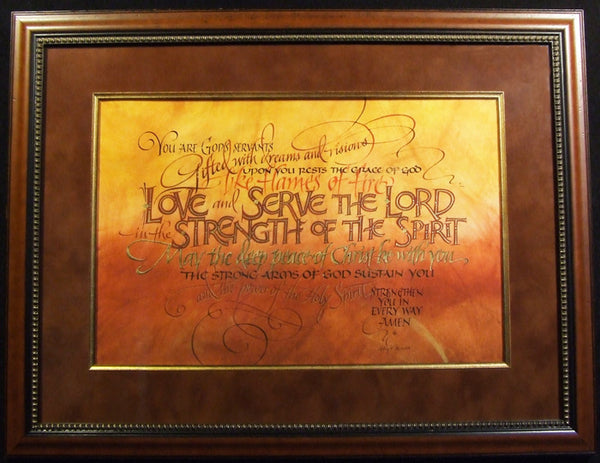 YOU ARE GOD'S SERVANTS
Gifted with dreams and visions
UPON YOU RESTS THE GRACE OF GOD
like flames of fire
LOVE and SERVE THE LORD
in the STRENGTH OF THE SPIRIT
May the deep peace of Christ be with you
THE STRONG ARMS OF GOD SUSTAIN YOU
and the power of the Holy Spirit
STRENGTHEN
YOU IN
EVERY WAY
-AMEN